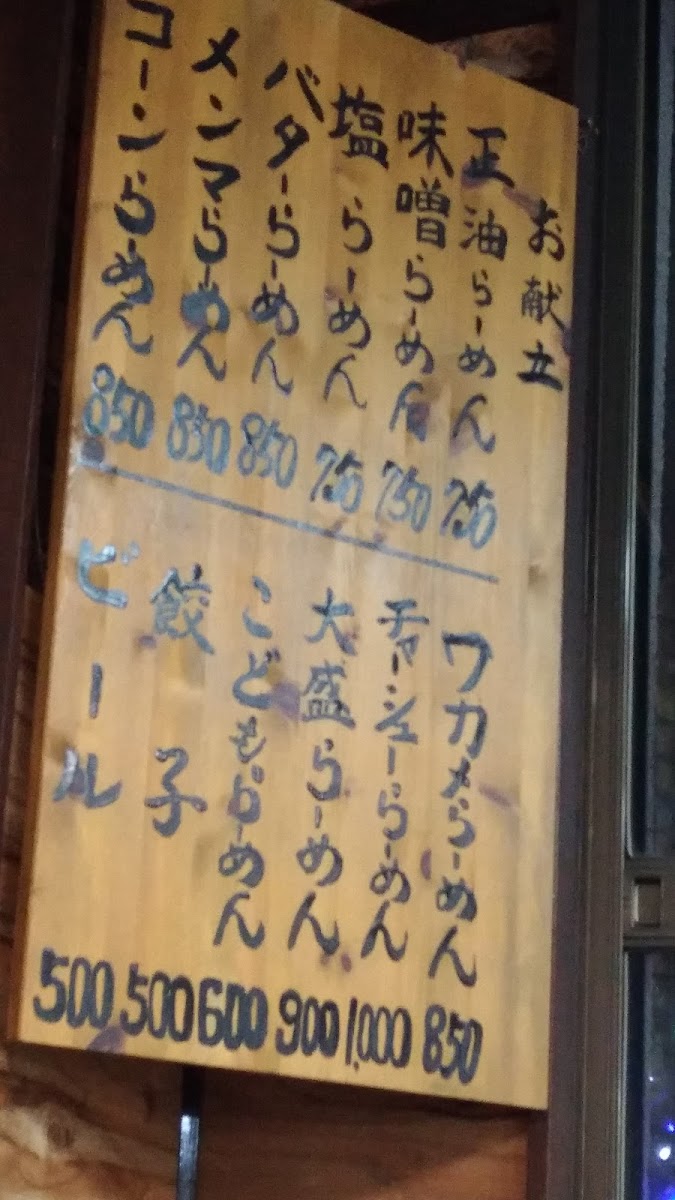 お献立
正油らーめん 750
味噌らーめん 750
塩らーめん 750
バターらーめん 850
メンマらーめん 850
コーンらーめん 850
ワカメらーめん 850
チャーシューらーめん 1,000
大盛らーめん 900
こどもらーめん 600
餃子 500
ビール 500